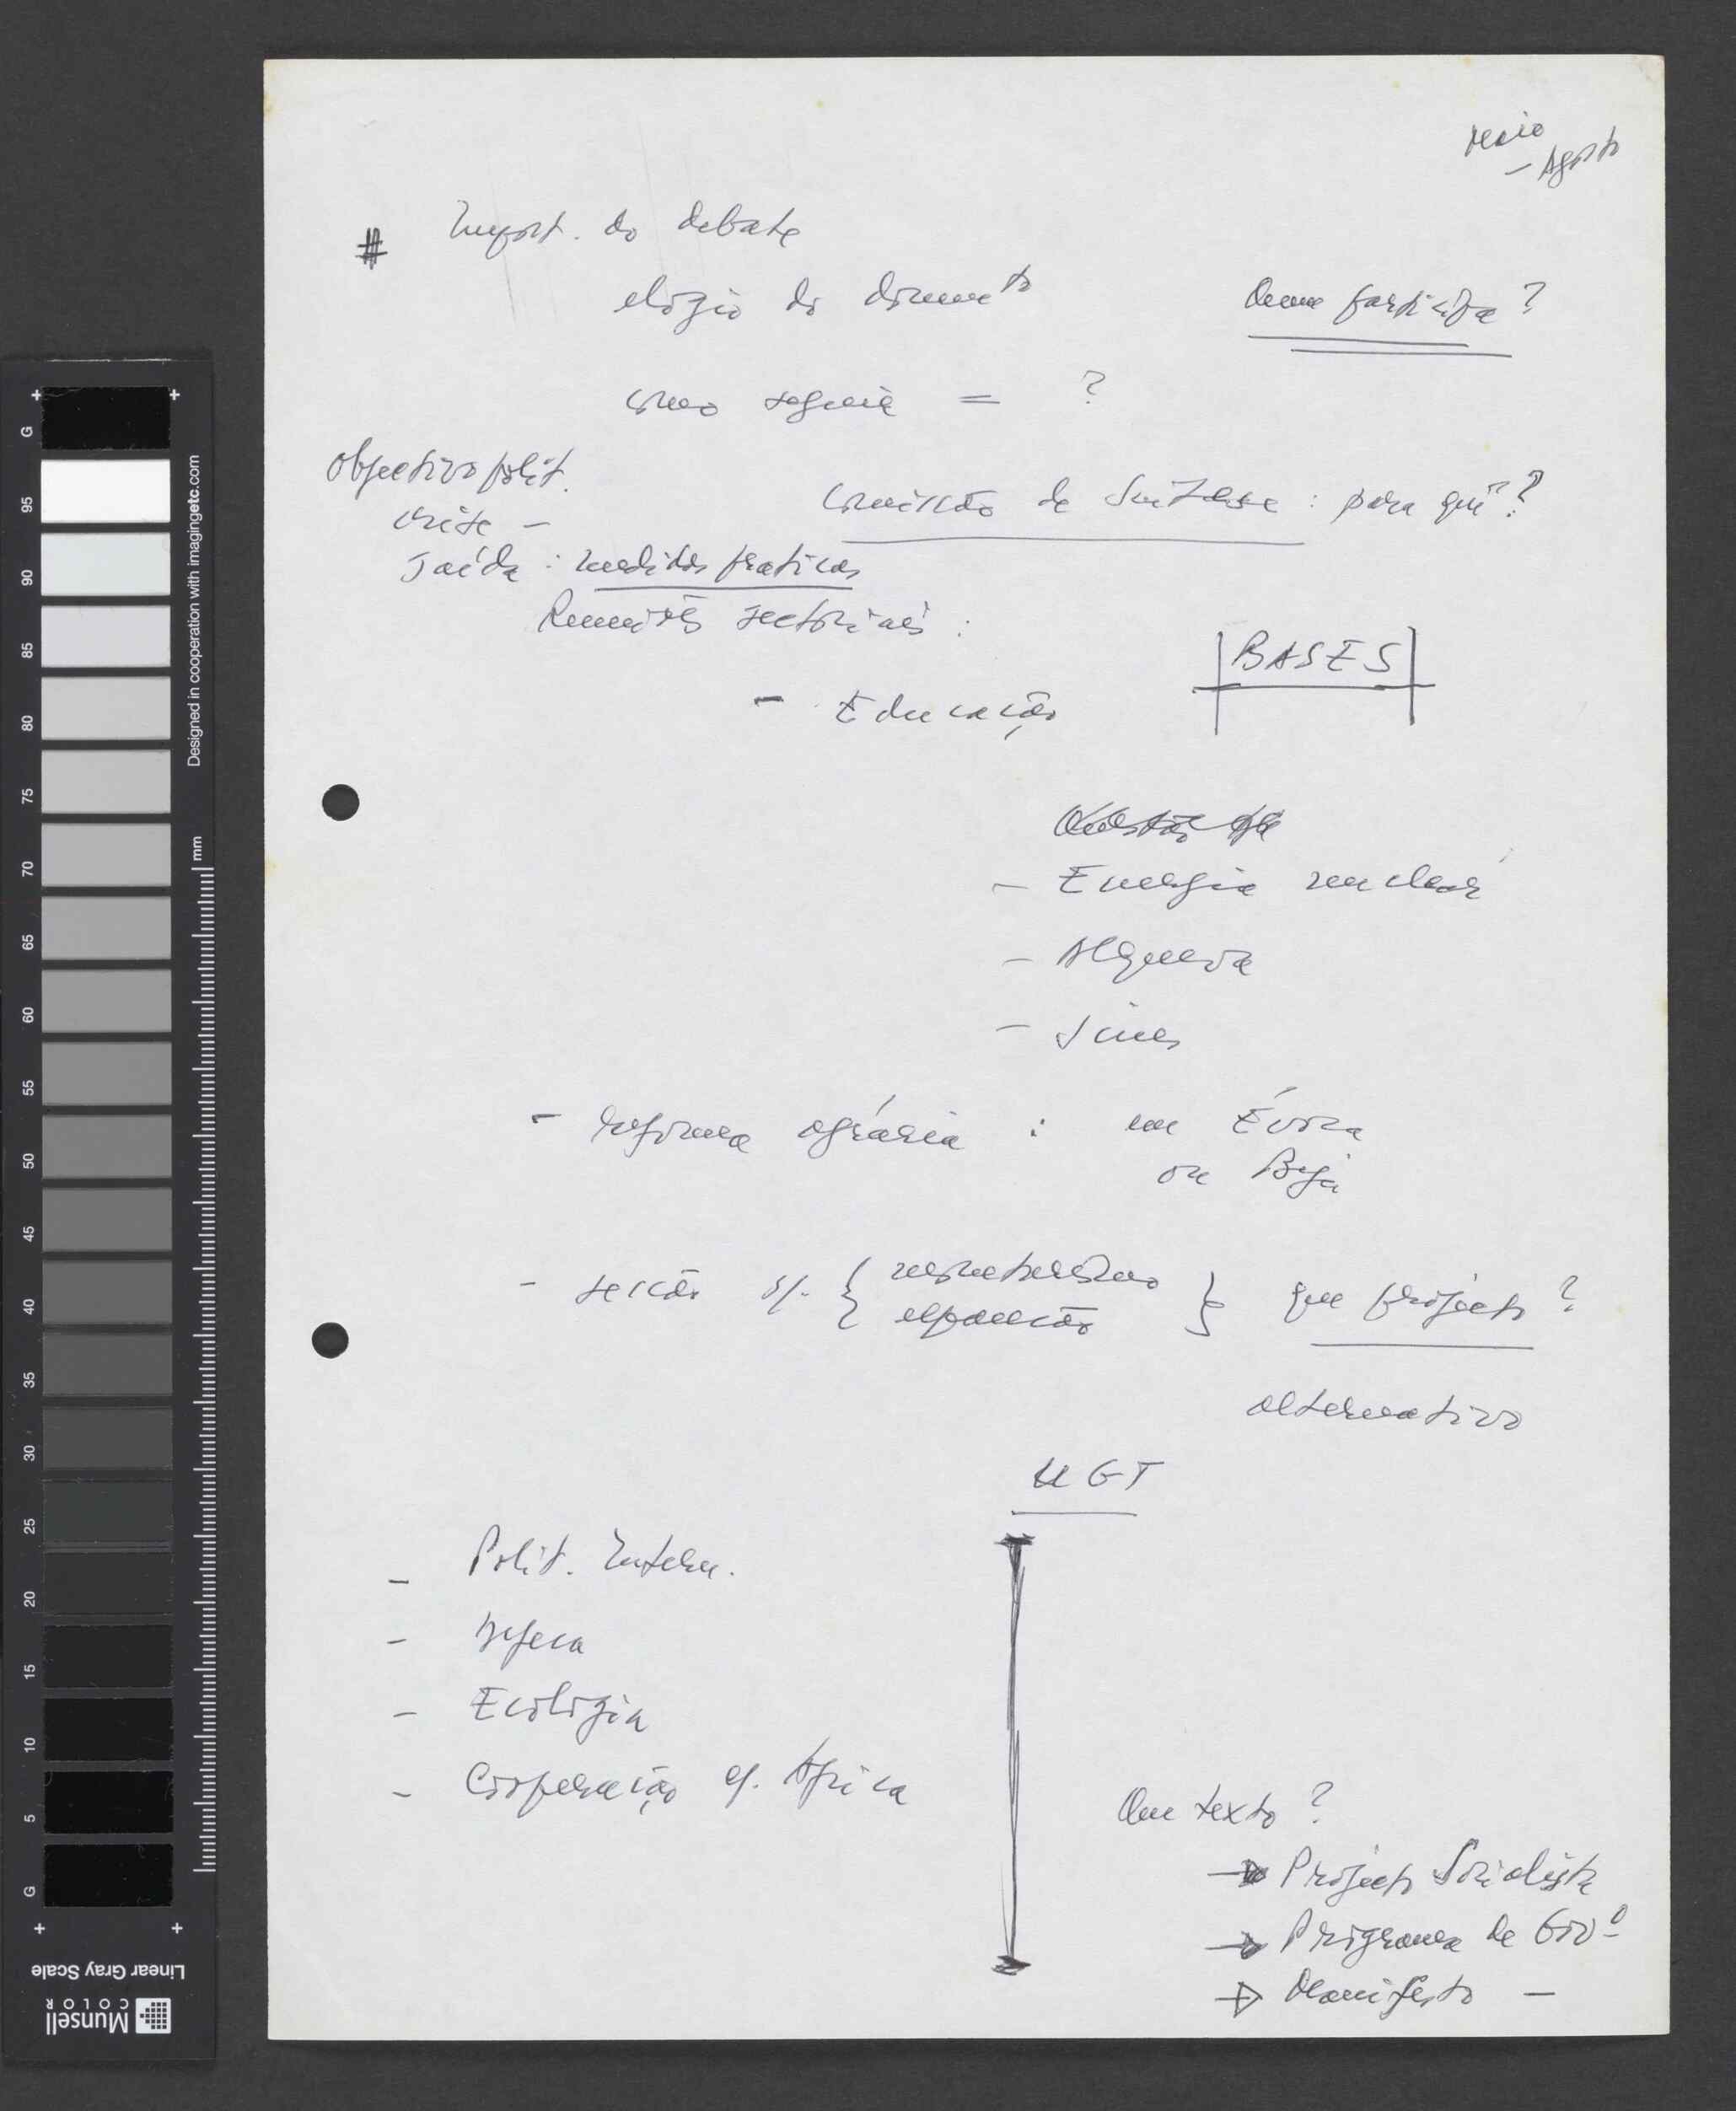 Maio
– Agosto
# Import. do debate
elogio do documto
Quem participa?
como seguir = ?
Objectivo polít.
crise –
saída : medidas práticas
Comissão de Síntese : para quê?
Reuniões sectoriais :
BASES
– Educação
– Energia nuclear
– Alqueva
– Sines
– Reforma agrária : em Évora
ou Beja
– sessão s/.
expansão
que projecto ?
alternativo
UGT
– Polit. Extern.
– Defesa
– Ecologia
– Cooperação c/. África
Que texto ?
→ Projecto Socialista
→ Programa de Govº
→ Manifesto –
G 95 90 85 80 75 70 65 60 55 50 45 40 35 30 25 20 15 10 5 G
mm
Designed in cooperation with imagingetc.com
Linear Gray Scale
Munsell
COLOR